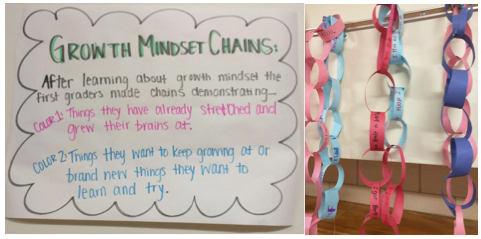 GROWTH MINDSET CHAINS:
After learning about growth mindset the
first graders made chains demonstrating...
COLOR 1: Things they have already stretched and
grew their brains at.
COLOR 2: Things they want to keep growing at or
brand new things they want to
learn and try.